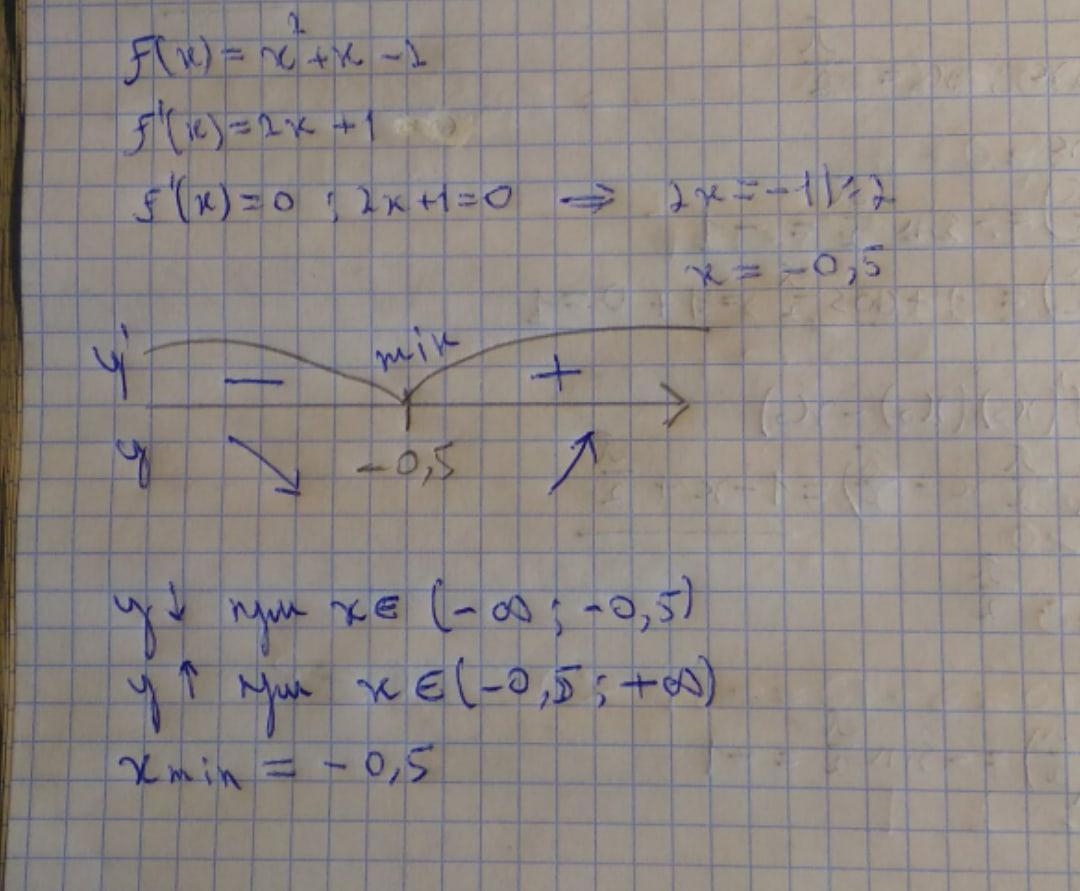 f(x) = x² + x - 1
f'(x) = 2x + 1
f'(x) = 0 ; 2x + 1 = 0 ⇒ 2x = -1 | : 2
x = -0,5
y' - min +
y ↘ -0,5 ↗
y ↓ при x ∈ (-∞ ; -0,5)
y ↑ при x ∈ (-0,5 ; +∞)
x min = -0,5